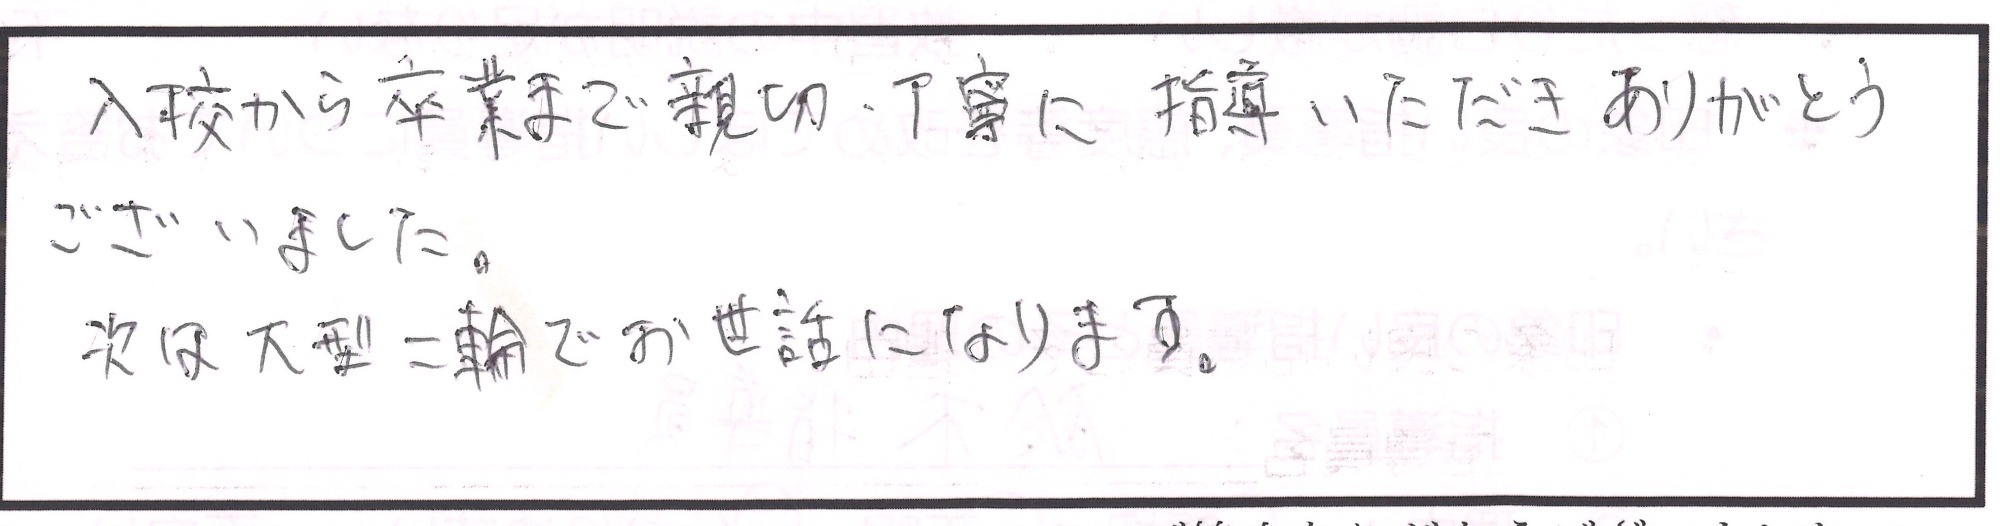 入校から卒業まで親切・丁寧に指導いただきありがとう
ございました。
次は大型二輪でお世話になります。